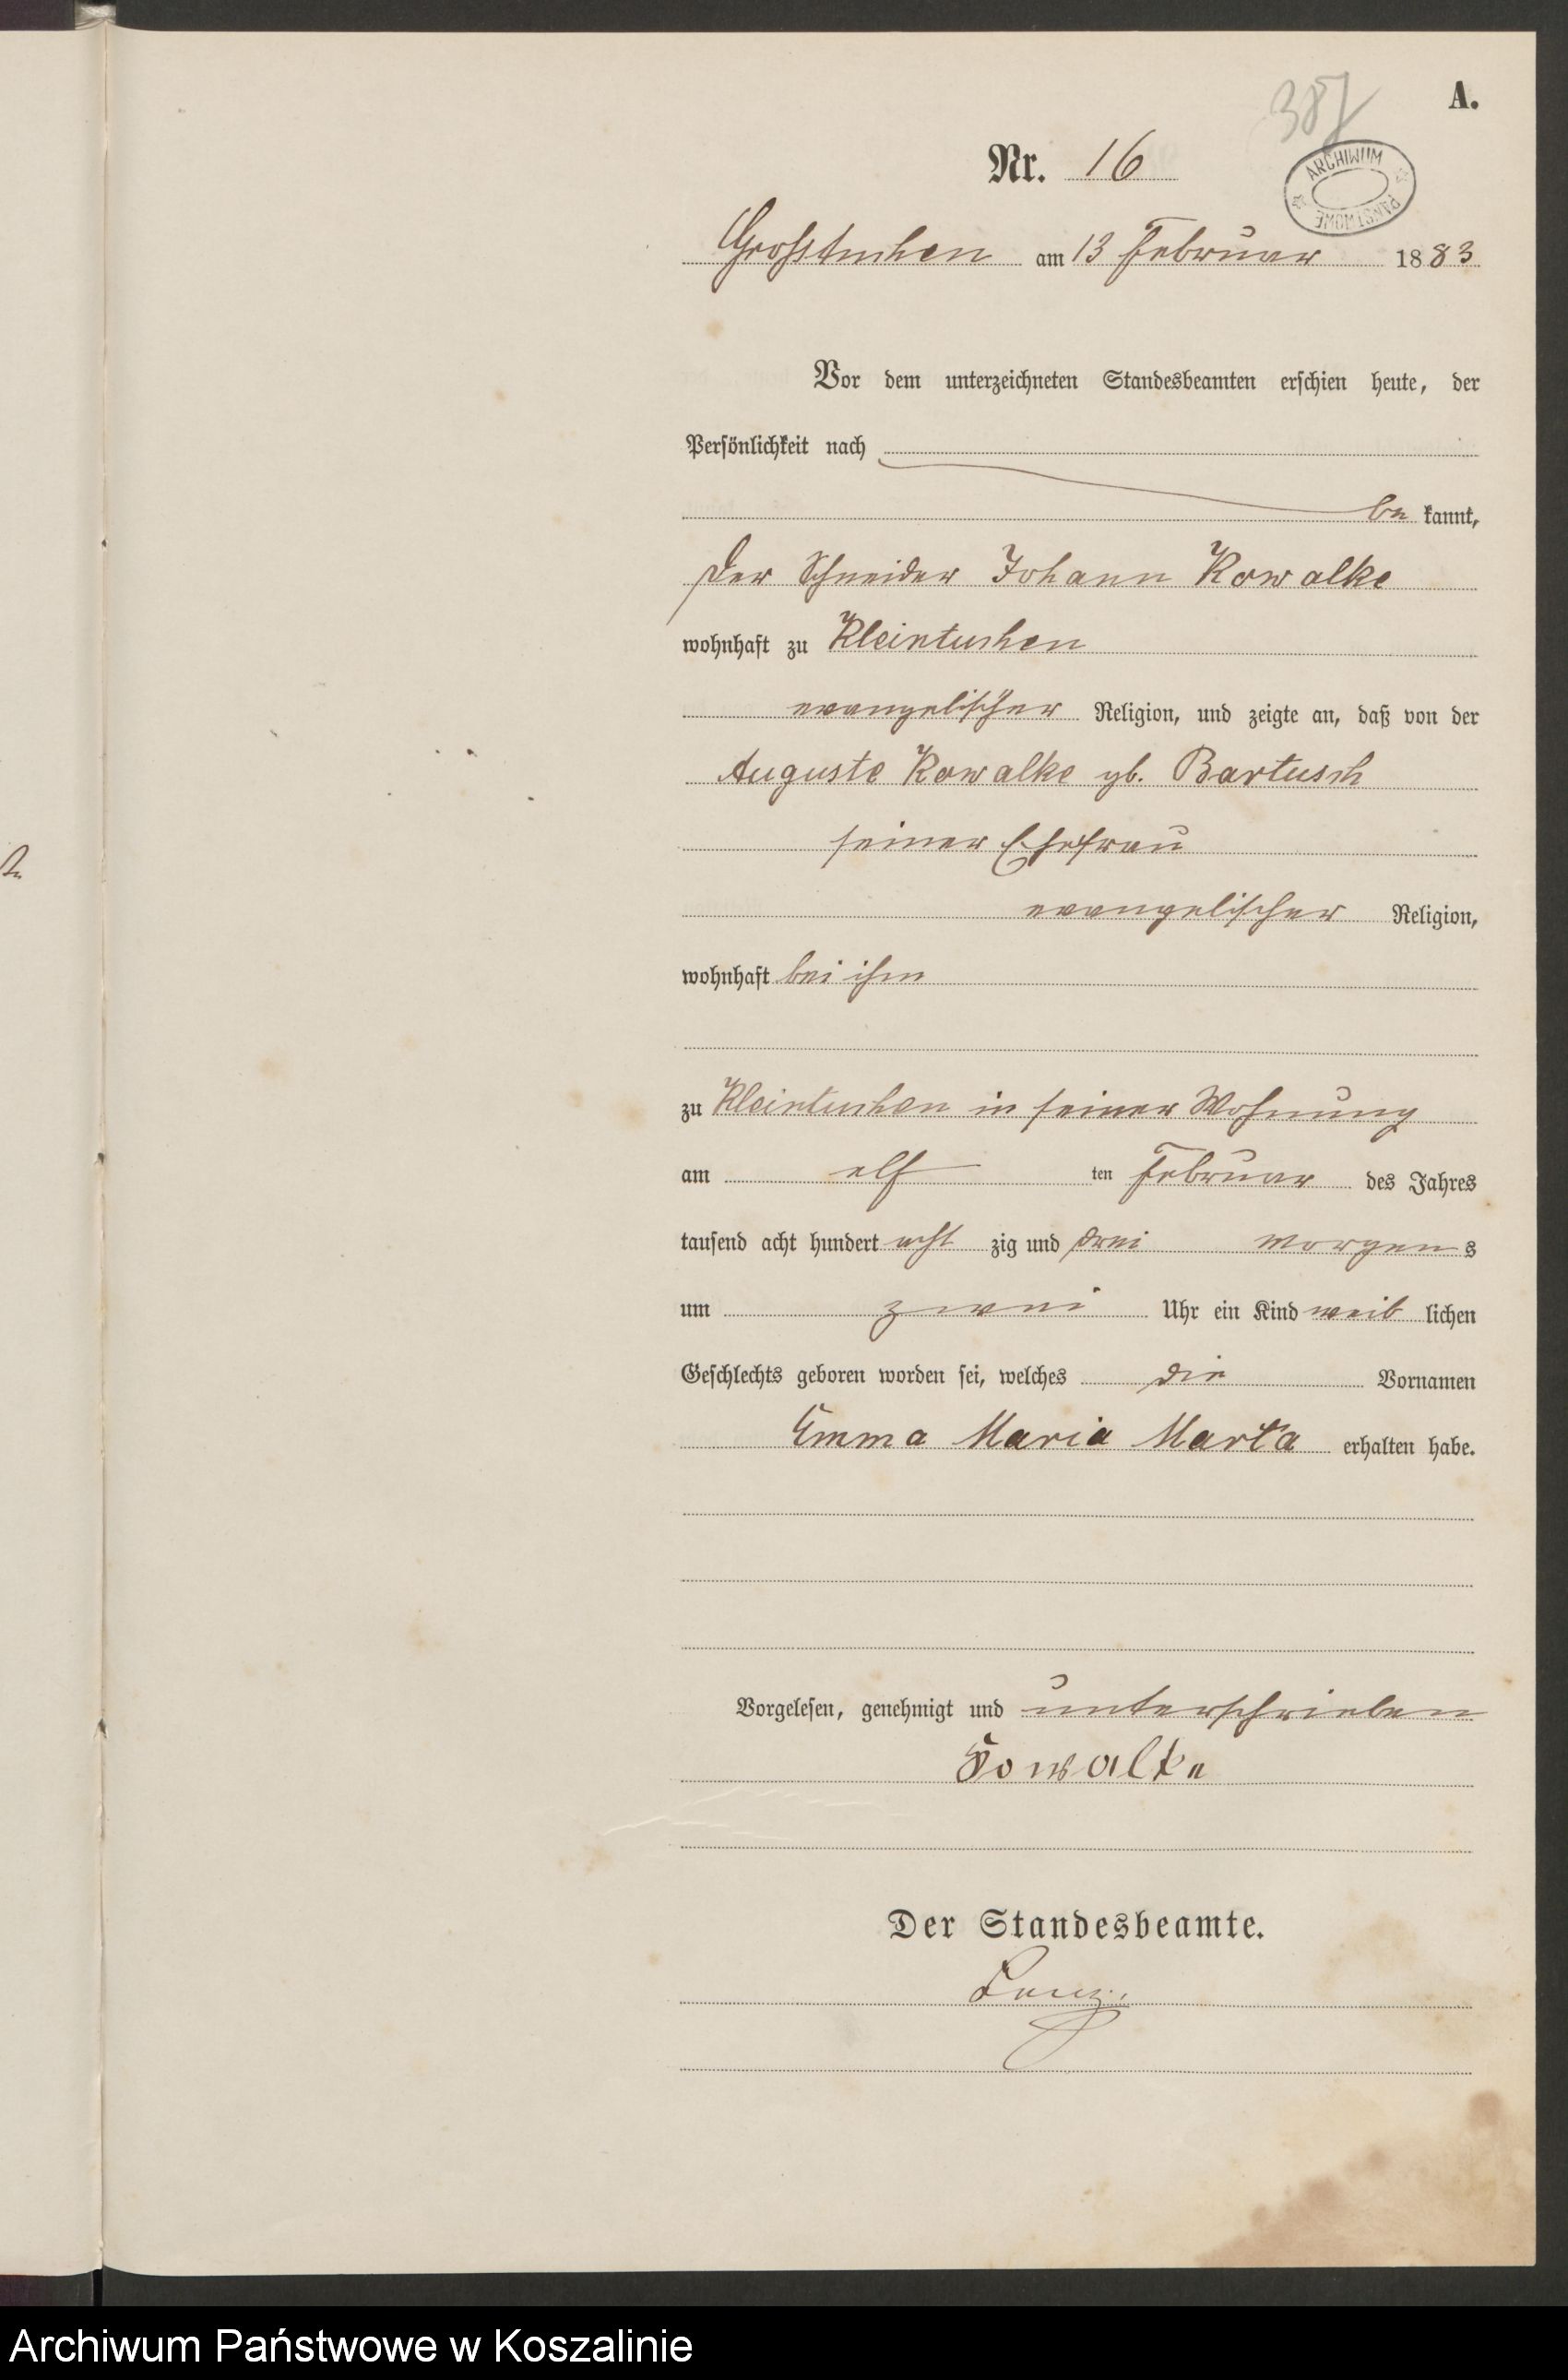 A.
387
Nr. 16
ARCHIWUM PAŃSTWOWE
Grosstuchen am 13 Februar 1883
Vor dem unterzeichneten Standesbeamten erschien heute, der
Persönlichkeit nach
be kannt,
der Schneider Johann Kowalke
wohnhaft zu Kleintuchen
evangelischer Religion, und zeigte an, daß von der
Auguste Kowalke gb. Bartusch
seiner Ehefrau
evangelischer Religion,
wohnhaft bei ihm
zu Kleintuchen in seiner Wohnung
am elf ten Februar des Jahres
tausend acht hundert acht zig und drei Morgens
um zwei Uhr ein Kind weib lichen
Geschlechts geboren worden sei, welches die Vornamen
Emma Maria Marta erhalten habe.
Vorgelesen, genehmigt und unterschrieben
Kowalke
Der Standesbeamte.
Archiwum Państwowe w Koszalinie